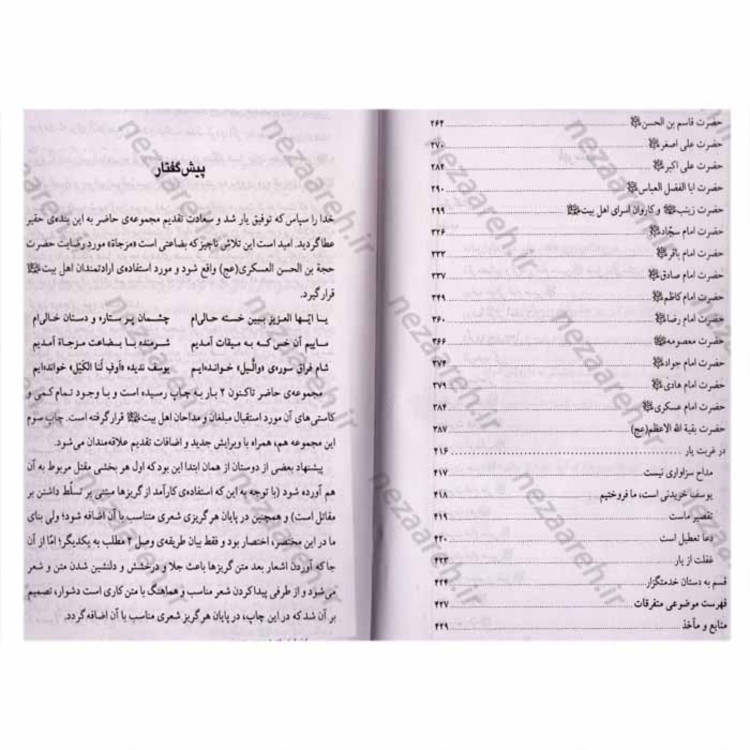 حضرت قاسم بن الحسن ۲۶۴
حضرت علی اصغر ۲۷۰
حضرت علی اکبر ۲۸۴
حضرت ابا الفضل العباس ۲۹۰
حضرت زینب و کاروان اسرای اهل بیت ۲۹۹
حضرت امام سجّاد ۳۲۶
حضرت امام باقر ۳۳۲
حضرت امام صادق ۳۳۷
حضرت امام کاظم ۳۴۹
حضرت امام رضا ۳۶۰
حضرت معصومه ۳۶۶
حضرت امام جواد ۳۷۴
حضرت امام هادی ۳۷۹
حضرت امام عسکری ۳۸۴
حضرت بقیة الله الاعظم(عج) ۳۸۷
در غربت یار ۴۱۶
مداح سزاواری نیست ۴۱۷
یوسف خریدنی است، ما فروختیم ۴۱۸
تقصیر ماست ۴۱۹
دعا تعطیل است ۴۲۰
غفلت از یار ۴۲۳
قسم به دستان خدمتگزار ۴۲۴
فهرست موضوعی متفرقات ۴۲۷
منابع و مآخذ ۴۲۹
پیش‌گفتار
خدا را سپاس که توفیق یار شد و سعادت تقدیم مجموعه‌ی حاضر به این بنده‌ی حقیر
عطا گردید. امید است این تلاش ناچیز که بضاعتی است «مزجاة» مورد رضایت حضرت
حجة بن الحسن العسکری(عج) واقع شود و مورد استفاده‌ی ارادتمندان اهل بیت
قرار گیرد.
یا ایّها العزیز ببین خسته حالی‌ام چشمان پر ستاره و دستان خالی‌ام
ماییم آن خس که به میقات آمدیم شرمنده با بضاعت مزجاة آمدیم
شام فراق سوره‌ی «والّیل» خوانده‌ایم یوسف ندیده «اَوفِ لَنا الکَیْل» خوانده‌ایم
مجموعه‌ی حاضر تاکنون ۲ بار به چاپ رسیده است و با وجود تمام کمی و
کاستی‌های آن مورد استقبال مبلغان و مداحان اهل بیت قرار گرفته است. چاپ سوم
این مجموعه هم، همراه با ویرایش جدید و اضافات تقدیم علاقه‌مندان می‌شود.
پیشنهاد بعضی از دوستان از همان ابتدا این بود که اول هر بخشی مقتل مربوط به آن
هم آورده شود (با توجه به این که استفاده‌ی کارآمد از گریزها مبتنی بر تسلّط داشتن بر
مقاتل است) و همچنین در پایان هر گریزی شعری متناسب با آن اضافه شود؛ ولی بنای
ما در این مختصر، اختصار بود و فقط بیان طریقه‌ی وصل ۲ مطلب به یکدیگر؛ امّا از آن
جا که آوردن اشعار بعد متن گریزها باعث جلا و درخشش و دلنشین شدن متن و شعر
می‌شود و از طرفی پیدا کردن شعر مناسب و هماهنگ با متن کاری است دشوار، تصمیم
بر آن شد که در این چاپ، در پایان هر گریز شعری مناسب با آن اضافه گردد.
nezaareh.ir